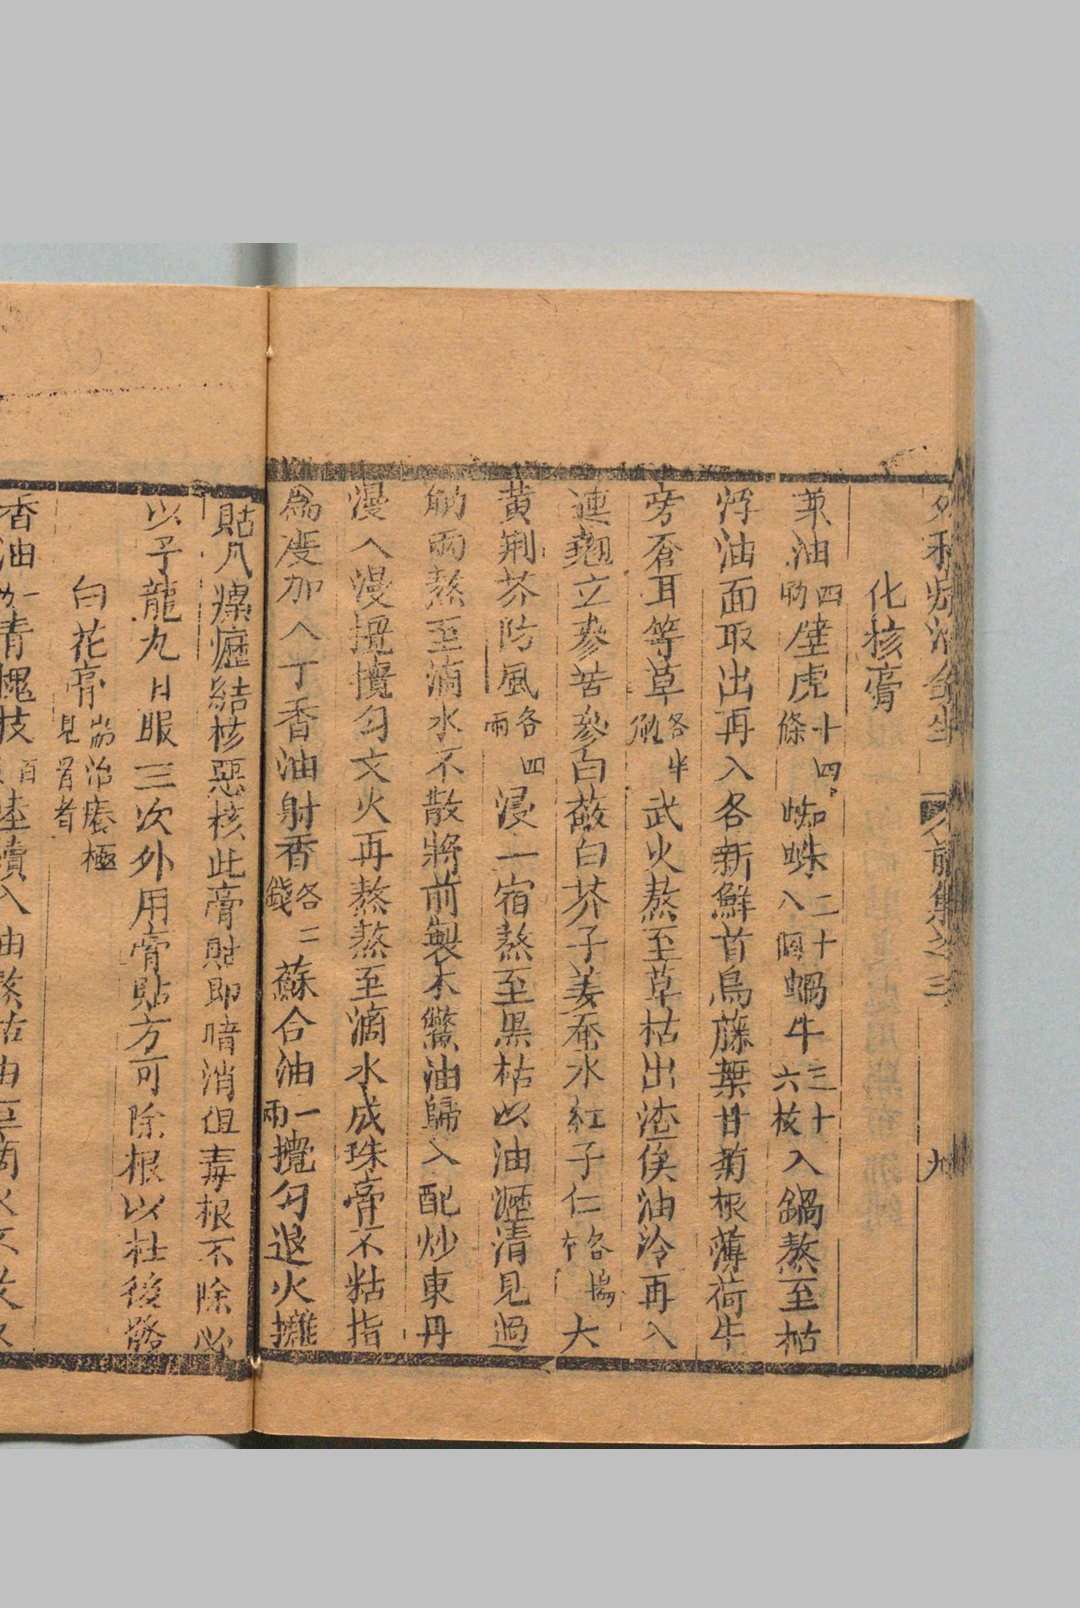 外科症治全生 前集之三 九
化核膏
菜油四觔壁虎十四條蜘蛛二十八個蝸牛三十六枚入鍋熬至枯
浮油面取出再入各新鮮首烏藤葉甘菊根薄荷牛
旁蒼耳等草各半觔武火熬至草枯出渣俟油冷再入
連翹立參苦參白蘞白芥子姜蚕水紅子仁各搗大
黃荊芥防風各四兩浸一宿熬至黑枯以油瀝清見過
觔兩熬至滴水不散將前製木鱉油歸入配炒東丹
漫入漫攪攪勻文火再熬熬至滴水成珠膏不粘指
為度加入丁香油射香各二錢蘇合油一兩攪勻退火攤
貼凡瘰癧結核惡核此膏貼即暗消但毒根不除必
以子龍丸日服三次外用膏貼方可除根以杜後
白花膏 耑治痒極見骨者
香油一觔青槐枝百